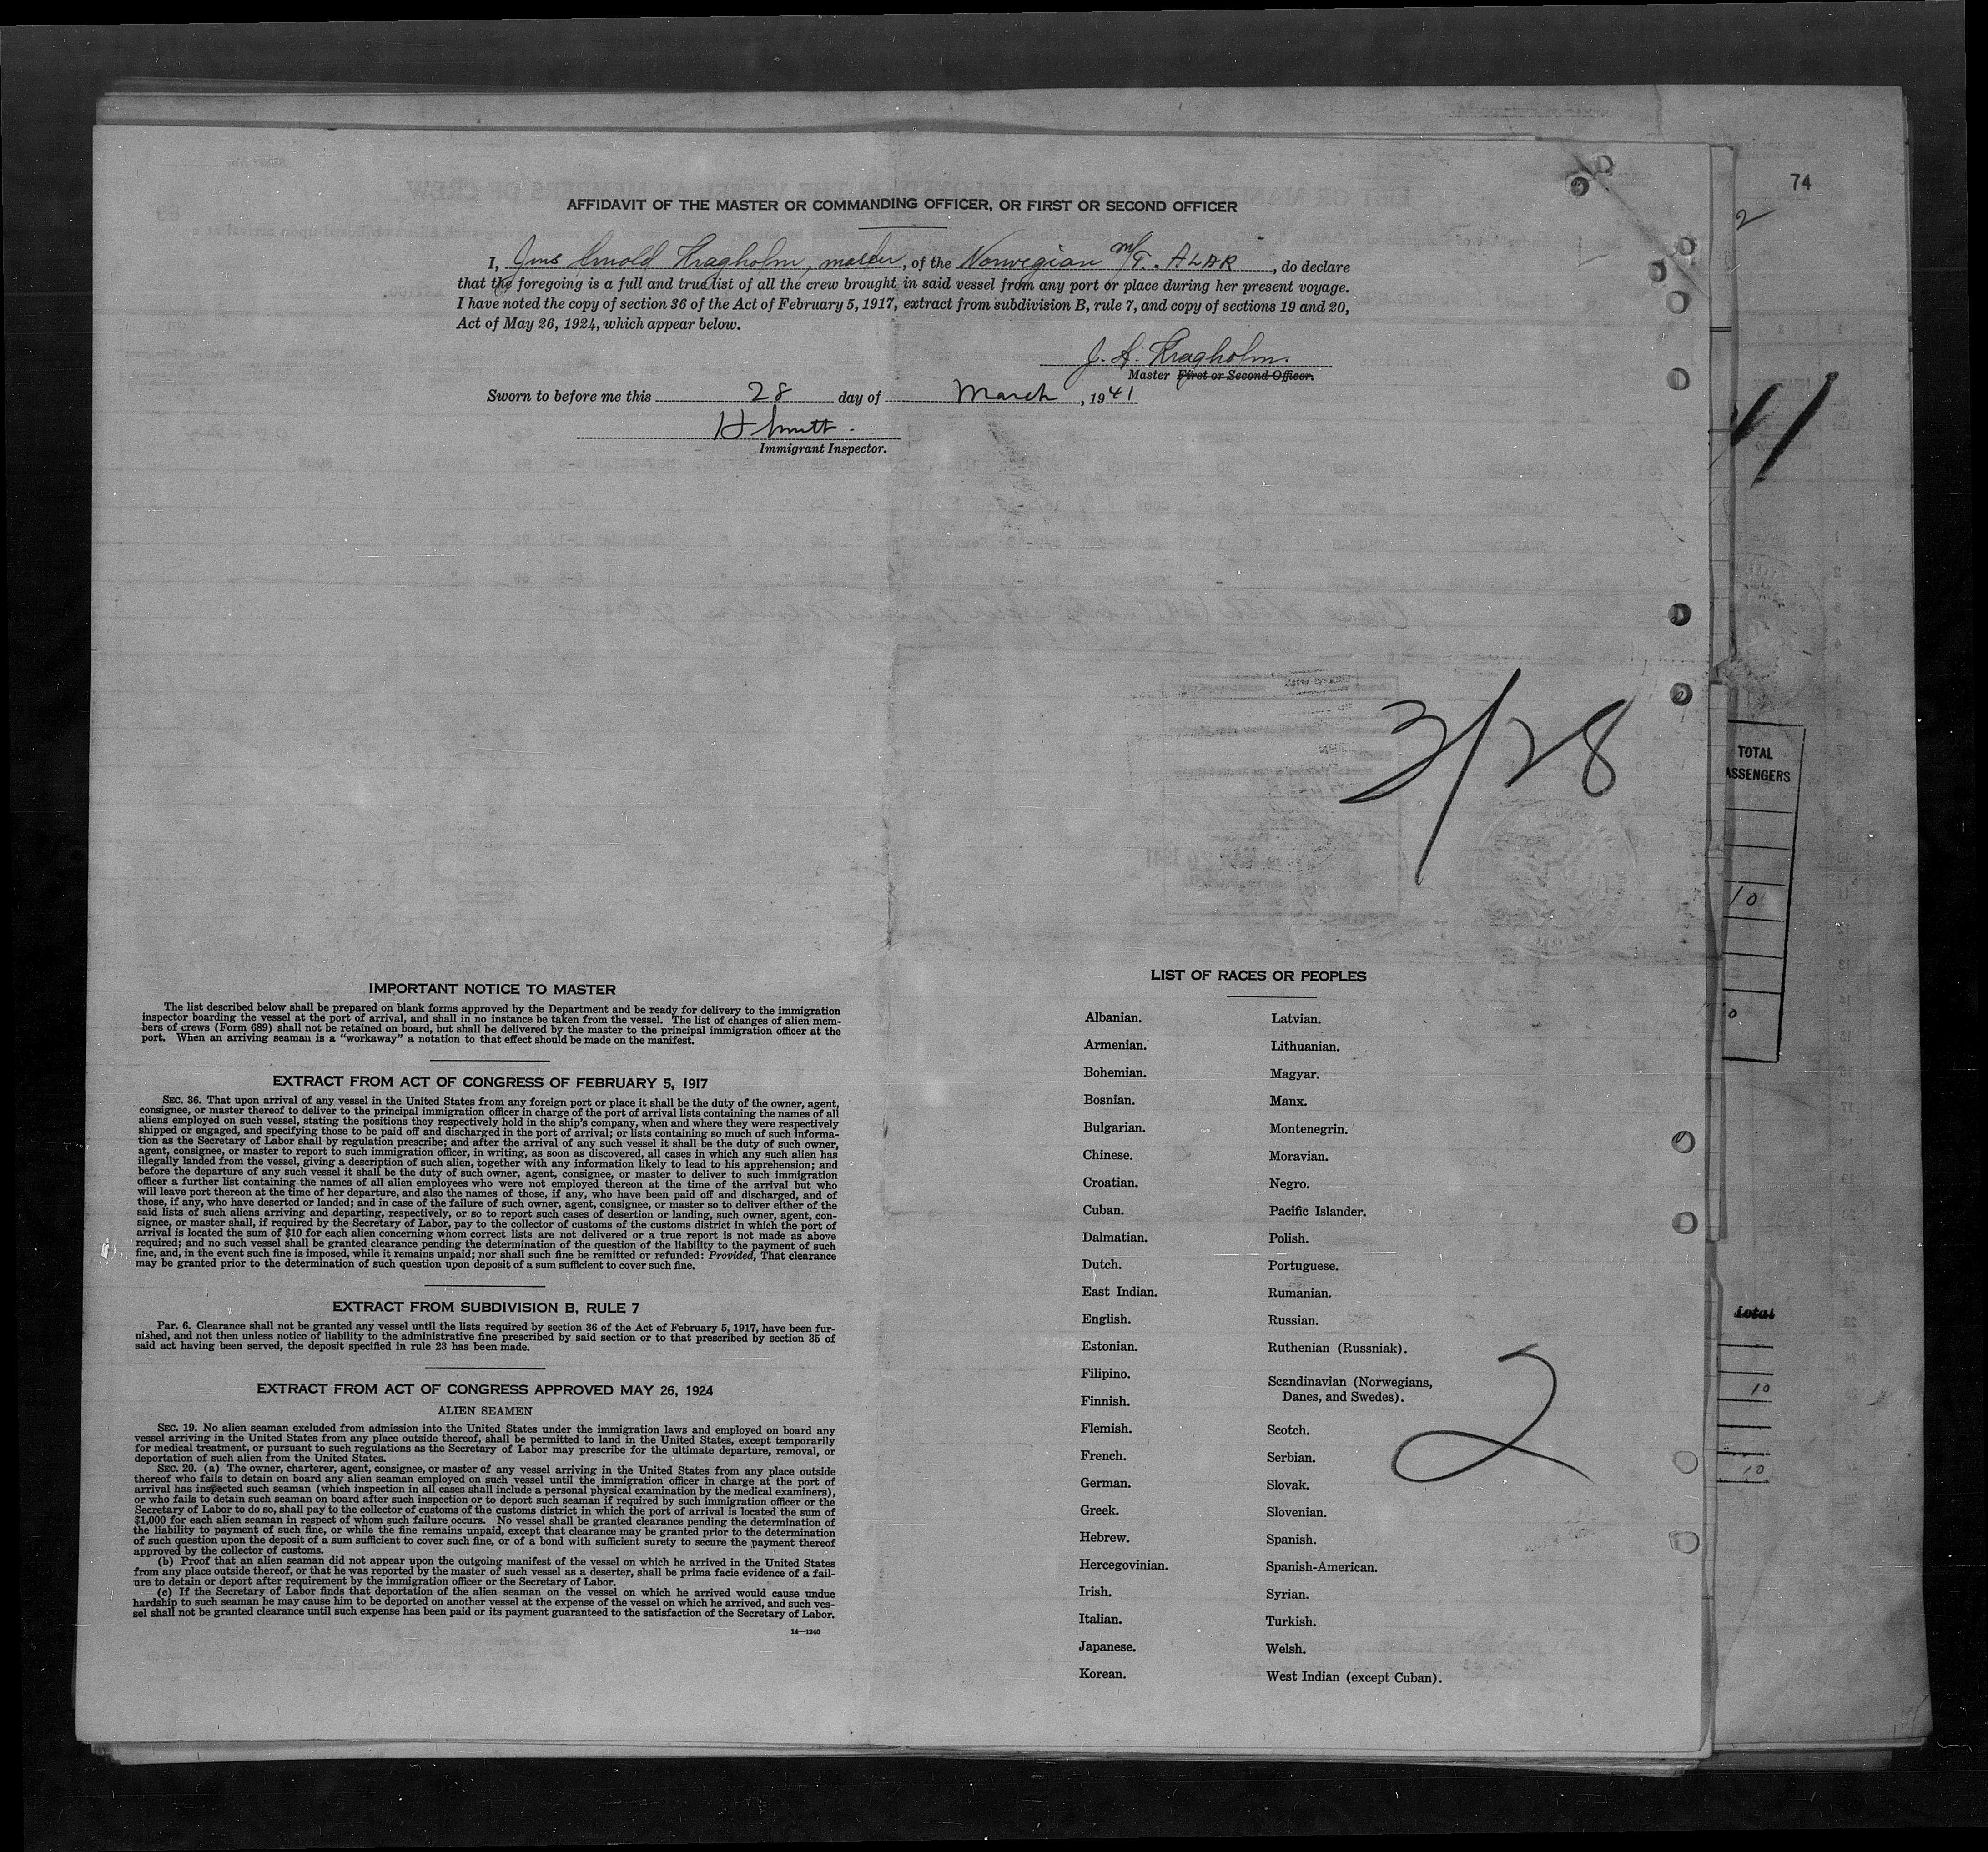 74
2
AFFIDAVIT OF THE MASTER OR COMMANDING OFFICER, OR FIRST OR SECOND OFFICER
I, Jens Arnold Kragholm, master, of the Norwegian M/T. ALAR, do declare
that the foregoing is a full and true list of all the crew brought in said vessel from any port or place during her present voyage.
I have noted the copy of section 36 of the Act of February 5, 1917, extract from subdivision B, rule 7, and copy of sections 19 and 20,
Act of May 26, 1924, which appear below.
J. A. Kragholm.
Master First or Second Officer.
Sworn to before me this 28 day of March, 1941
Immigrant Inspector.
3/28
TOTAL
ASSENGERS
10
0
IMPORTANT NOTICE TO MASTER
The list described below shall be prepared on blank forms approved by the Department and be ready for delivery to the immigration
inspector boarding the vessel at the port of arrival, and shall in no instance be taken from the vessel. The list of changes of alien mem-
bers of crews (Form 689) shall not be retained on board, but shall be delivered by the master to the principal immigration officer at the
port. When an arriving seaman is a "workaway" a notation to that effect should be made on the manifest.
EXTRACT FROM ACT OF CONGRESS OF FEBRUARY 5, 1917
SEC. 36. That upon arrival of any vessel in the United States from any foreign port or place it shall be the duty of the owner, agent,
consignee, or master thereof to deliver to the principal immigration officer in charge of the port of arrival lists containing the names of all
aliens employed on such vessel, stating the positions they respectively hold in the ship's company, when and where they were respectively
shipped or engaged, and specifying those to be paid off and discharged in the port of arrival; or lists containing so much of such informa-
tion as the Secretary of Labor shall by regulation prescribe; and after the arrival of any such vessel it shall be the duty of such owner,
agent, consignee, or master to report to such immigration officer, in writing, as soon as discovered, all cases in which any such alien has
illegally landed from the vessel, giving a description of such alien, together with any information likely to lead to his apprehension; and
before the departure of any such vessel it shall be the duty of such owner, agent, consignee, or master to deliver to such immigration
officer a further list containing the names of all alien employees who were not employed thereon at the time of the arrival but who
will leave port thereon at the time of her departure, and also the names of those, if any, who have been paid off and discharged, and of
those, if any, who have deserted or landed; and in case of the failure of such owner, agent, consignee, or master so to deliver either of the
said lists of such aliens arriving and departing, respectively, or so to report such cases of desertion or landing, such owner, agent, con-
signee, or master shall, if required by the Secretary of Labor, pay to the collector of customs of the customs district in which the port of
arrival is located the sum of $10 for each alien concerning whom correct lists are not delivered or a true report is not made as above
required; and no such vessel shall be granted clearance pending the determination of the question of the liability to the payment of such
fine, and, in the event such fine is imposed, while it remains unpaid; nor shall such fine be remitted or refunded: Provided, That clearance
may be granted prior to the determination of such question upon deposit of a sum sufficient to cover such fine.
EXTRACT FROM SUBDIVISION B, RULE 7
Par. 6. Clearance shall not be granted any vessel until the lists required by section 36 of the Act of February 5, 1917, have been fur-
nished, and not then unless notice of liability to the administrative fine prescribed by said section or to that prescribed by section 35 of
said act having been served, the deposit specified in rule 23 has been made.
EXTRACT FROM ACT OF CONGRESS APPROVED MAY 26, 1924
ALIEN SEAMEN
SEC. 19. No alien seaman excluded from admission into the United States under the immigration laws and employed on board any
vessel arriving in the United States from any place outside thereof, shall be permitted to land in the United States, except temporarily
for medical treatment, or pursuant to such regulations as the Secretary of Labor may prescribe for the ultimate departure, removal, or
deportation of such alien from the United States.
SEC. 20. (a) The owner, charterer, agent, consignee, or master of any vessel arriving in the United States from any place outside
thereof who fails to detain on board any alien seaman employed on such vessel until the immigration officer in charge at the port of
arrival has inspected such seaman (which inspection in all cases shall include a personal physical examination by the medical examiners),
or who fails to detain such seaman on board after such inspection or to deport such seaman if required by such immigration officer or the
Secretary of Labor to do so, shall pay to the collector of customs of the customs district in which the port of arrival is located the sum of
$1,000 for each alien seaman in respect of whom such failure occurs. No vessel shall be granted clearance pending the determination of
the liability to payment of such fine, or while the fine remains unpaid, except that clearance may be granted prior to the determination
of such question upon the deposit of a sum sufficient to cover such fine, or of a bond with sufficient surety to secure the payment thereof
approved by the collector of customs.
(b) Proof that an alien seaman did not appear upon the outgoing manifest of the vessel on which he arrived in the United States
from any place outside thereof, or that he was reported by the master of such vessel as a deserter, shall be prima facie evidence of a fail-
ure to detain or deport after requirement by the immigration officer or the Secretary of Labor.
(c) If the Secretary of Labor finds that deportation of the alien seaman on the vessel on which he arrived would cause undue
hardship to such seaman he may cause him to be deported on another vessel at the expense of the vessel on which he arrived, and such ves-
sel shall not be granted clearance until such expense has been paid or its payment guaranteed to the satisfaction of the Secretary of Labor.
14—1240
LIST OF RACES OR PEOPLES
Albanian.
Armenian.
Bohemian.
Bosnian.
Bulgarian.
Chinese.
Croatian.
Cuban.
Dalmatian.
Dutch.
East Indian.
English.
Estonian.
Filipino.
Finnish.
Flemish.
French.
German.
Greek.
Hebrew.
Hercegovinian.
Irish.
Italian.
Japanese.
Korean.
Latvian.
Lithuanian.
Magyar.
Manx.
Montenegrin.
Moravian.
Negro.
Pacific Islander.
Polish.
Portuguese.
Rumanian.
Russian.
Ruthenian (Russniak).
Scandinavian (Norwegians,
Danes, and Swedes).
Scotch.
Serbian.
Slovak.
Slovenian.
Spanish.
Spanish-American.
Syrian.
Turkish.
Welsh.
West Indian (except Cuban).
2
total
10
10